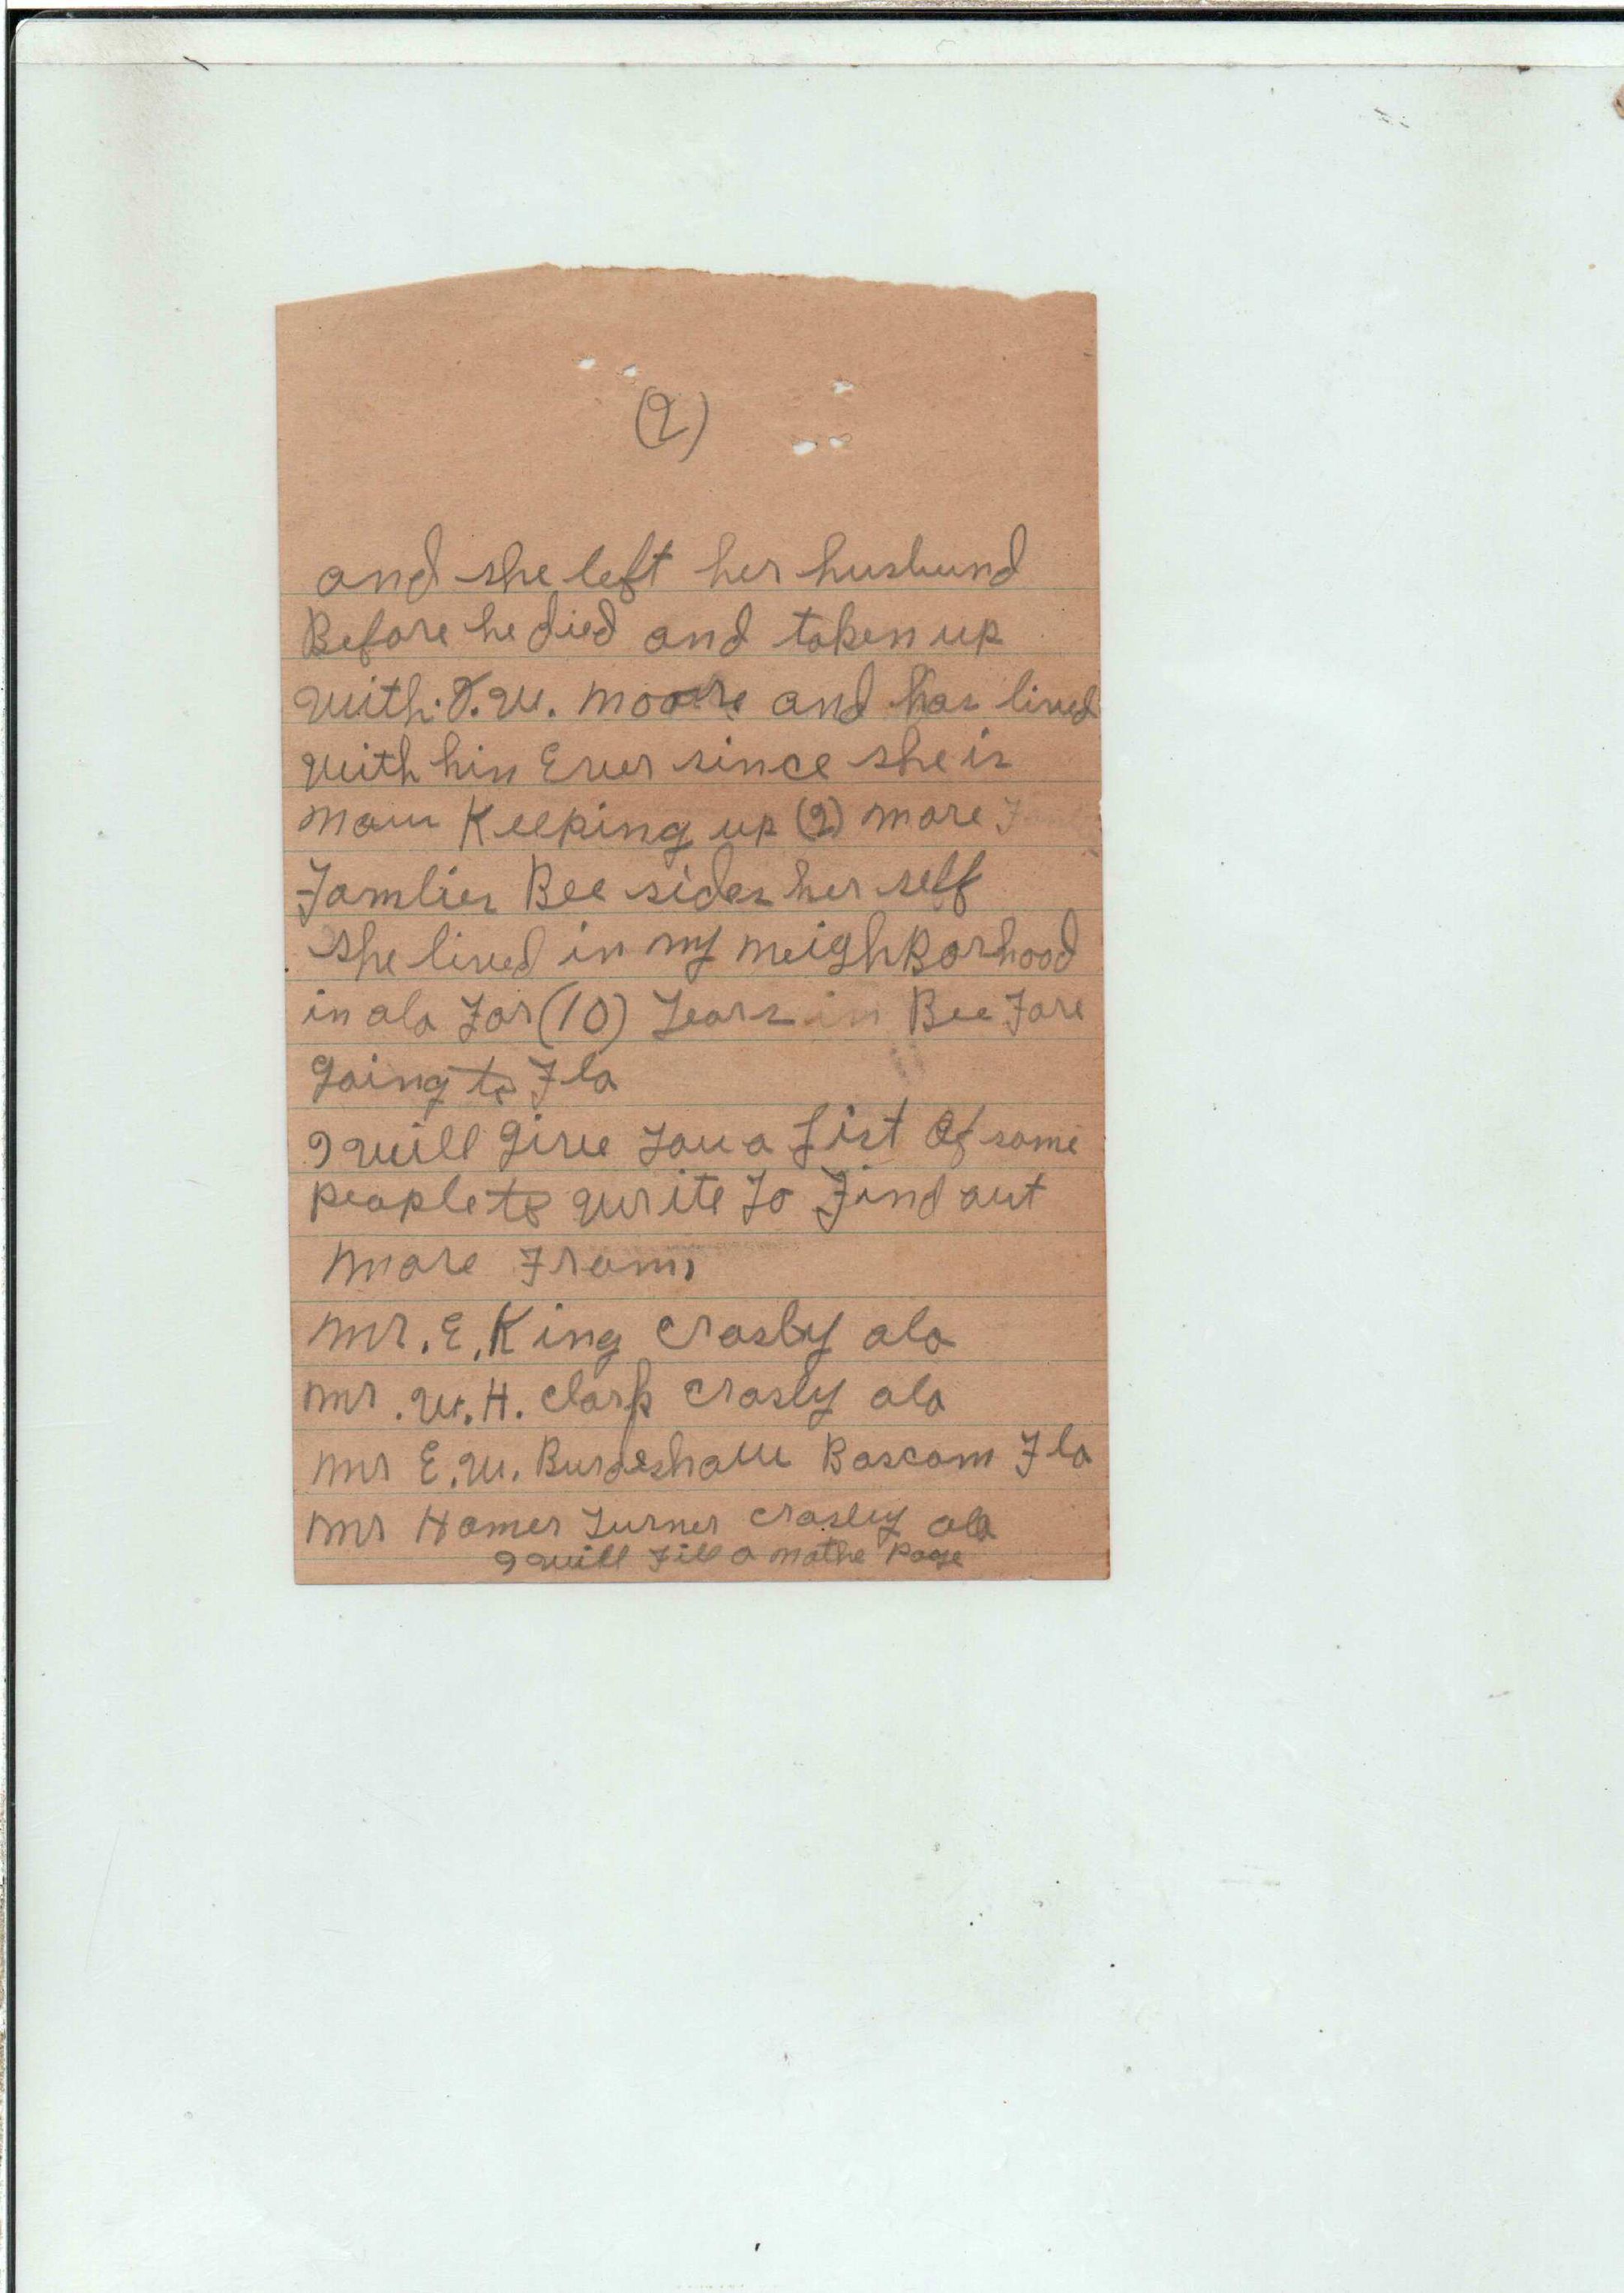 (2)
and she left her husbund
Before he died and taken up
with T.W. Moore and has lived
with him Ever since she is
now Keeping up (2) more
Famlies Bee sides her self
she lived in my neighBorhood
in ala For (10) Years in Bee Fore
going to Fla
I will give you a List Of some
people to write To Find out
more From,
Mr. E. King Crosby ala
Mr. W. H. Clark Crosby ala
Mr E. W. Burdeshaw Bascom Fla
Mr Homer Turner Crosby ala
I will Fill a nothe Page